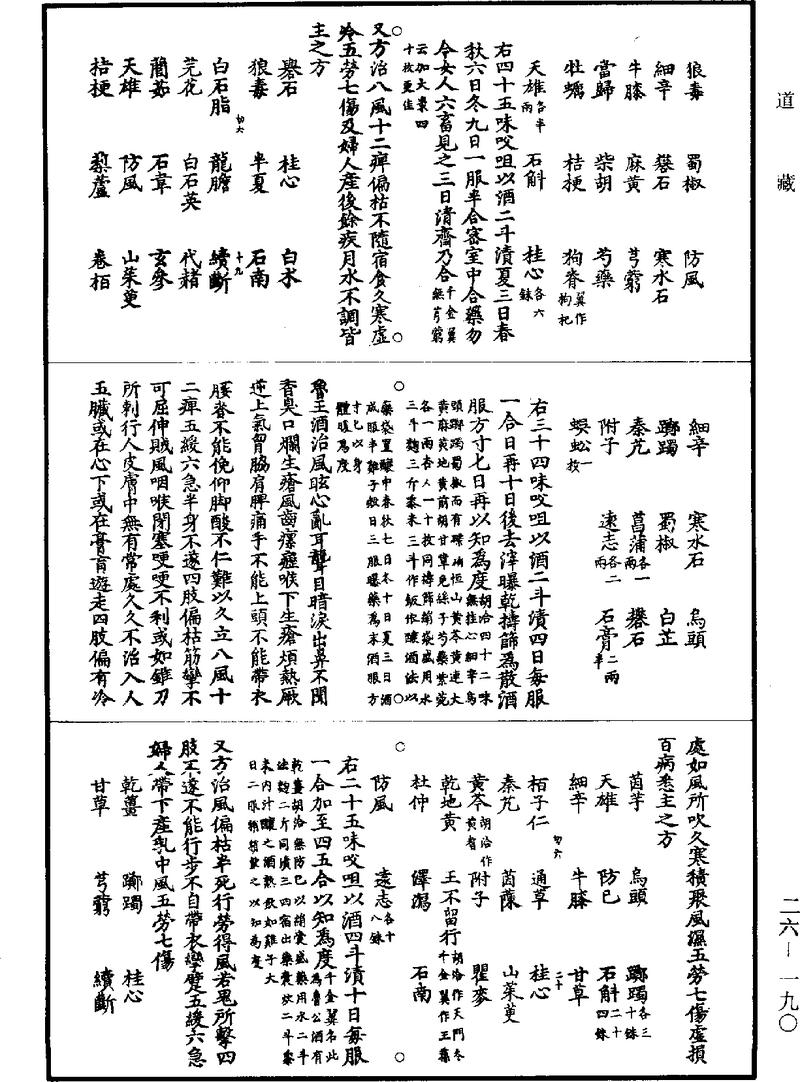 道藏
狼毒 蜀椒 防風
細辛 礜石 寒水石
牛膝 麻黃 芎藭
當歸 柴胡 芍藥
牡蠣 桔梗 狗脊翼作枸杞
天雄各半兩 石斛 桂心各六銖
右四十五味㕮咀以酒二斗漬夏三日春
秋六日冬九日一服半合密室中合藥勿
令女人六畜見之三日清齋乃合千金翼無芎藭
云加大棗四十枚更佳
又方治八風十二痺偏枯不隨宿食久寒虛
冷五勞七傷及婦人產後餘疾月水不調皆
主之方
礜石 桂心 白术
狼毒 半夏 石南
白石脂 龍膽 續斷
芫花 白石英 代赭
䕡茹 石韋 玄參
天雄 防風 山茱萸
桔梗 藜蘆 卷栢
細辛 寒水石 烏頭
躑躅 蜀椒 白芷
秦艽 菖蒲各一兩 礬石
附子 遠志各二兩 石膏二兩半
蜈蚣一枚
右三十四味㕮咀以酒二斗漬四日每服
一合日再十日後去滓曝乾擣篩爲散酒
服方寸匕日再以知爲度胡洽四十二味無桂心細辛烏
頭躑躅蜀椒而有
魯王酒治風眩心亂耳聾目暗淚出鼻不聞
香臭口爛生瘡風齒瘰癧喉下生瘡煩熱厥
逆上氣胷脇肩脾痛手不能上頭不能帶衣
腰脊不能俛仰脚酸不仁難以久立八風十
二痺五緩六急半身不遂四肢偏枯筋攣不
可屈伸賊風咽喉閉塞哽哽不利或如錐刀
所刺行人皮膚中無有常處久久不治入人
五臟或在心下或在膏肓遊走四肢偏有冷
處如風所吹久寒積聚風濕五勞七傷虛損
百病悉主之方
茵芋 烏頭 躑躅各三十銖
天雄 防已 石斛二十四銖
細辛 牛膝 甘草
栢子仁 通草 桂心
秦艽 茵蔯 山茱萸
黃芩胡洽作黃耆 附子 瞿麥
乾地黃 王不留行胡洽作天門冬千金翼作王藥 
杜仲 澤瀉 石南
防風 遠志各十八銖
右二十五味㕮咀以酒四斗漬十日每服
一合加至四五合以知爲度千金翼名此爲魯公酒有
乾薑胡洽無防已以絹囊盛藥用水二斗
法麴二斤同漬三四宿出藥囊炊二斗黍
米內汁釀之酒熟飲如雞子大
日二服稍稍飲之以知爲度
又方治風偏枯半死行勞得風若鬼所擊四
肢不遂不能行步不自帶衣攣躄五緩六急
婦人帶下產乳中風五勞七傷
乾薑 躑躅 桂心
甘草 芎藭 續斷
二六—一九〇